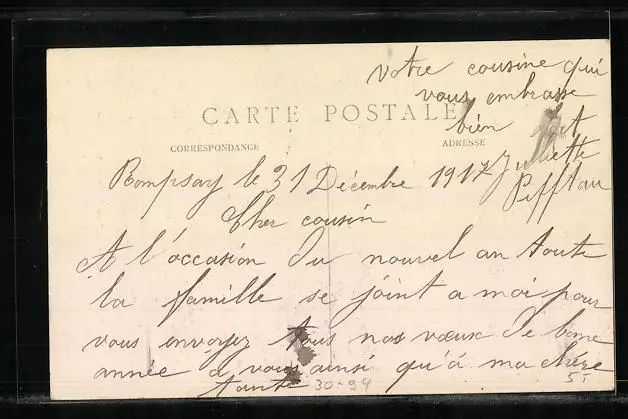 votre cousine qui
vous embrasse
bien fort
Juliette
CARTE POSTALE
CORRESPONDANCE
ADRESSE
Rompsay le 31 Décembre 1917
Cher cousin
A l'occasion du nouvel an toute
la famille se joint a moi pour
vous envoyez tous nos vœux de bonne
année à vous ainsi qu'à ma chère
tante
30-99
51